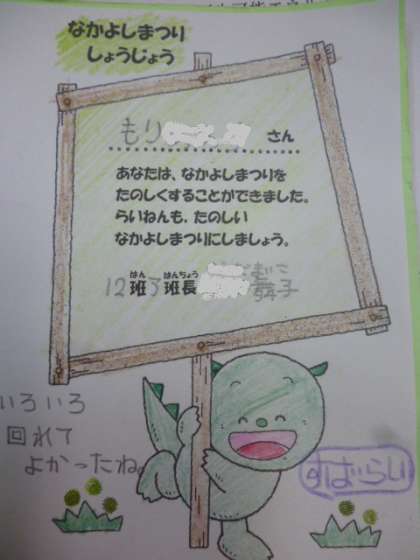 なかよしまつり
しょうじょう
もり さん
あなたは、なかよしまつりを
たのしくすることができました。
らいねんも、たのしい
なかよしまつりにしましょう。
12班 班長 舞子
はん はんちょう
いろいろ
回れて
よかったね。
すばらしい